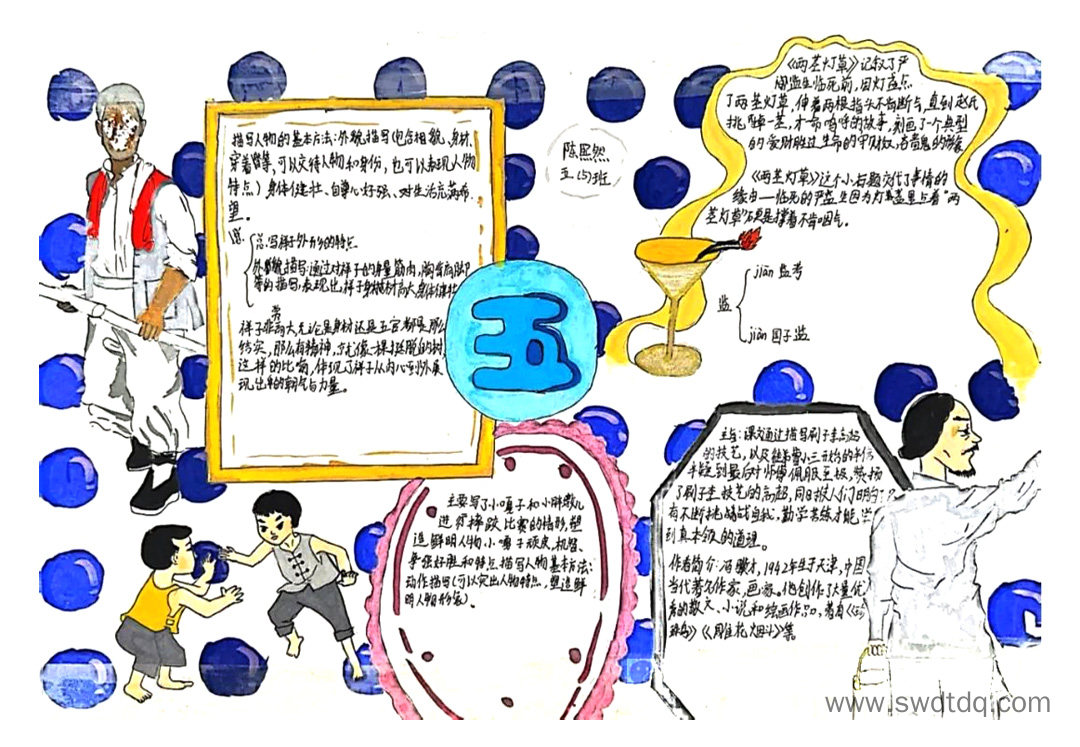 描写人物的基本方法:外貌描写(包含相貌、身材、
穿着等,可以交待人物和身份,也可以表现人物
特点)身体健壮、自尊心好强、对生活充满希
望。
外貌描写:通过对祥子的身量筋肉,胸
等的描写,表现出,祥子身材高大身体健壮
祥子非常高大,无论是身材还是五官都是那么
结实,那么有精神,就像一棵挺脱的树
这样的比喻,体现了祥子从内心到外展
现出来的朝气与力量。
陈熙然
五(5)班
五
《两茎灯草》记叙了严
监生临死前,因灯盏点
了两茎灯草,伸着两根指头不肯断气,直到赵氏
挑掉一茎,才一命呜呼的故事,刻画了一个典型
的爱财胜过生命的守财奴,吝啬鬼的形象
《两茎灯草》这个小标题交代了事情的
缘由——临死的严监生因为灯盏里点着“两
茎灯草”硬是撑着不肯咽气。
监
jiān 监考
jiàn 国子监
主要写了小嘎子和小胖墩儿
进行摔跤比赛的情形,塑
造鲜明人物,小嘎子顽皮、机智、
争强好胜和特点,描写人物基本方法:
动作描写(可以突出人物特点,塑造鲜
明人物形象)。
主旨:课文通过描写刷子李高超
的技艺,以及徒弟曹小三
到最后对师傅佩服至极,赞扬
了刷子李技艺的高超,同时
有不断挑战自我,勤学苦练才能
到真本领的道理。
作者简介:冯骥才,1942年生于天津,中国
当代著名作家、画家。他创作了大量优
秀的散文、小说和绘画作品,著有《珍
珠鸟》《雕花烟斗》等
www.swdtdq.com